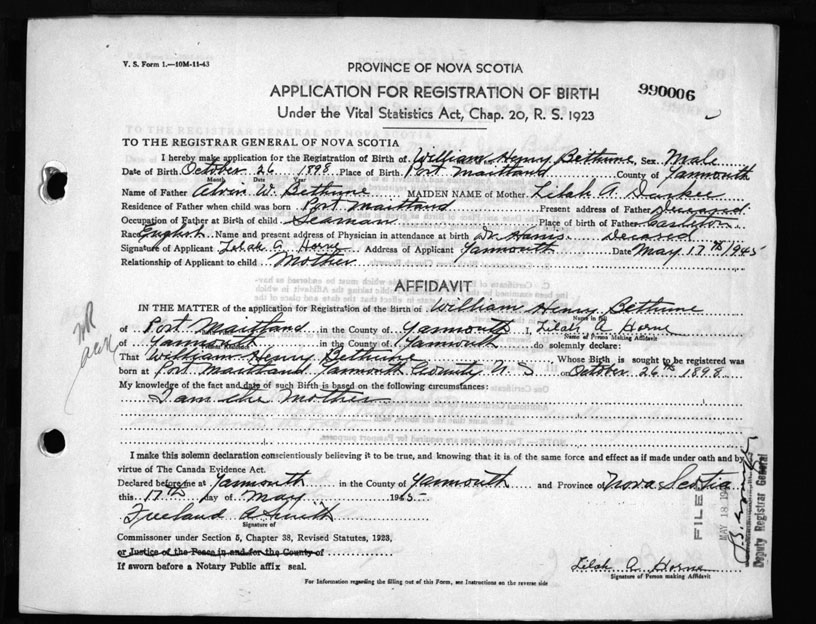 V. S. Form 1.—10M-11-43
PROVINCE OF NOVA SCOTIA
APPLICATION FOR REGISTRATION OF BIRTH
990006
Under the Vital Statistics Act, Chap. 20, R. S. 1923
TO THE REGISTRAR GENERAL OF NOVA SCOTIA
I hereby make application for the Registration of Birth of William Henry Bethune, Sex Male
Date of Birth October 26 1898 Place of Birth Port Maitland County of Yarmouth
Month Date Year
Name of Father Alvin W. Bethune MAIDEN NAME of Mother Lilah A. Durkee
Residence of Father when child was born Port Maitland Present address of Father Deceased
Occupation of Father at Birth of child Seaman Place of birth of Father Carleton
Race English Name and present address of Physician in attendance at birth Dr Harris Deceased
Signature of Applicant Lilah A Horne Address of Applicant Yarmouth Date May 17th 1945
Relationship of Applicant to child Mother
AFFIDAVIT
IN THE MATTER of the application for Registration of the Birth of William Henry Bethune
Name in full
of Port Maitland in the County of Yarmouth I, Lilah A Horne
Name of Person Making Affidavit
of Yarmouth in the County of Yarmouth do solemnly declare:
That William Henry Bethune Whose Birth is sought to be registered was
born at Port Maitland Yarmouth County N. S on October 26th 1898
My knowledge of the fact and date of such Birth is based on the following circumstances:
I am the Mother
I make this solemn declaration conscientiously believing it to be true, and knowing that it is of the same force and effect as if made under oath and by
virtue of The Canada Evidence Act.
Declared before me at Yarmouth in the County of Yarmouth and Province of Nova Scotia
this 17th day of May 1945
Freeland A Smith
Signature of
Commissioner under Section 5, Chapter 38, Revised Statutes, 1923,
or Justice of the Peace in and for the County of
If sworn before a Notary Public affix seal.
Lilah A Horne
Signature of Person making Affidavit
For Information regarding the filling out of this Form, see Instructions on the reverse side
FILED
MAY 18 19
Deputy Registrar General